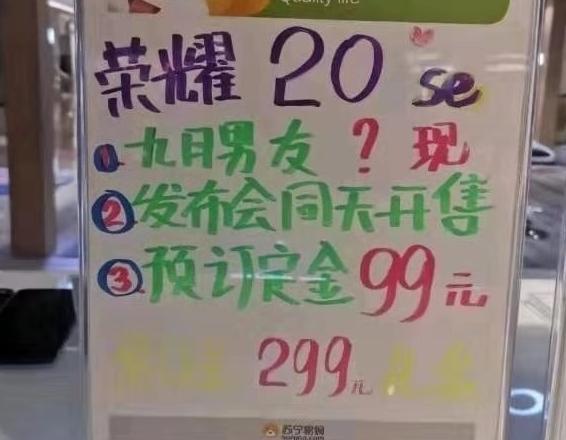 Quality life
荣耀 20 se
① 九月男友 ? 现
② 发布会同天开售
③ 预订定金 99 元
299元
苏宁易购
suning.com